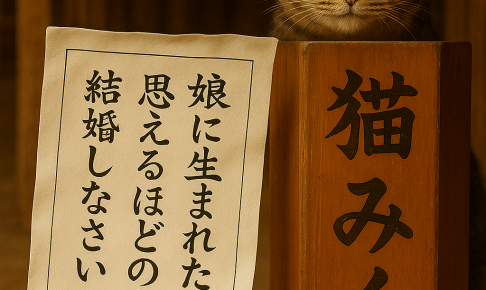 猫み
娘に生まれた
思えるほどの
結婚しなさい